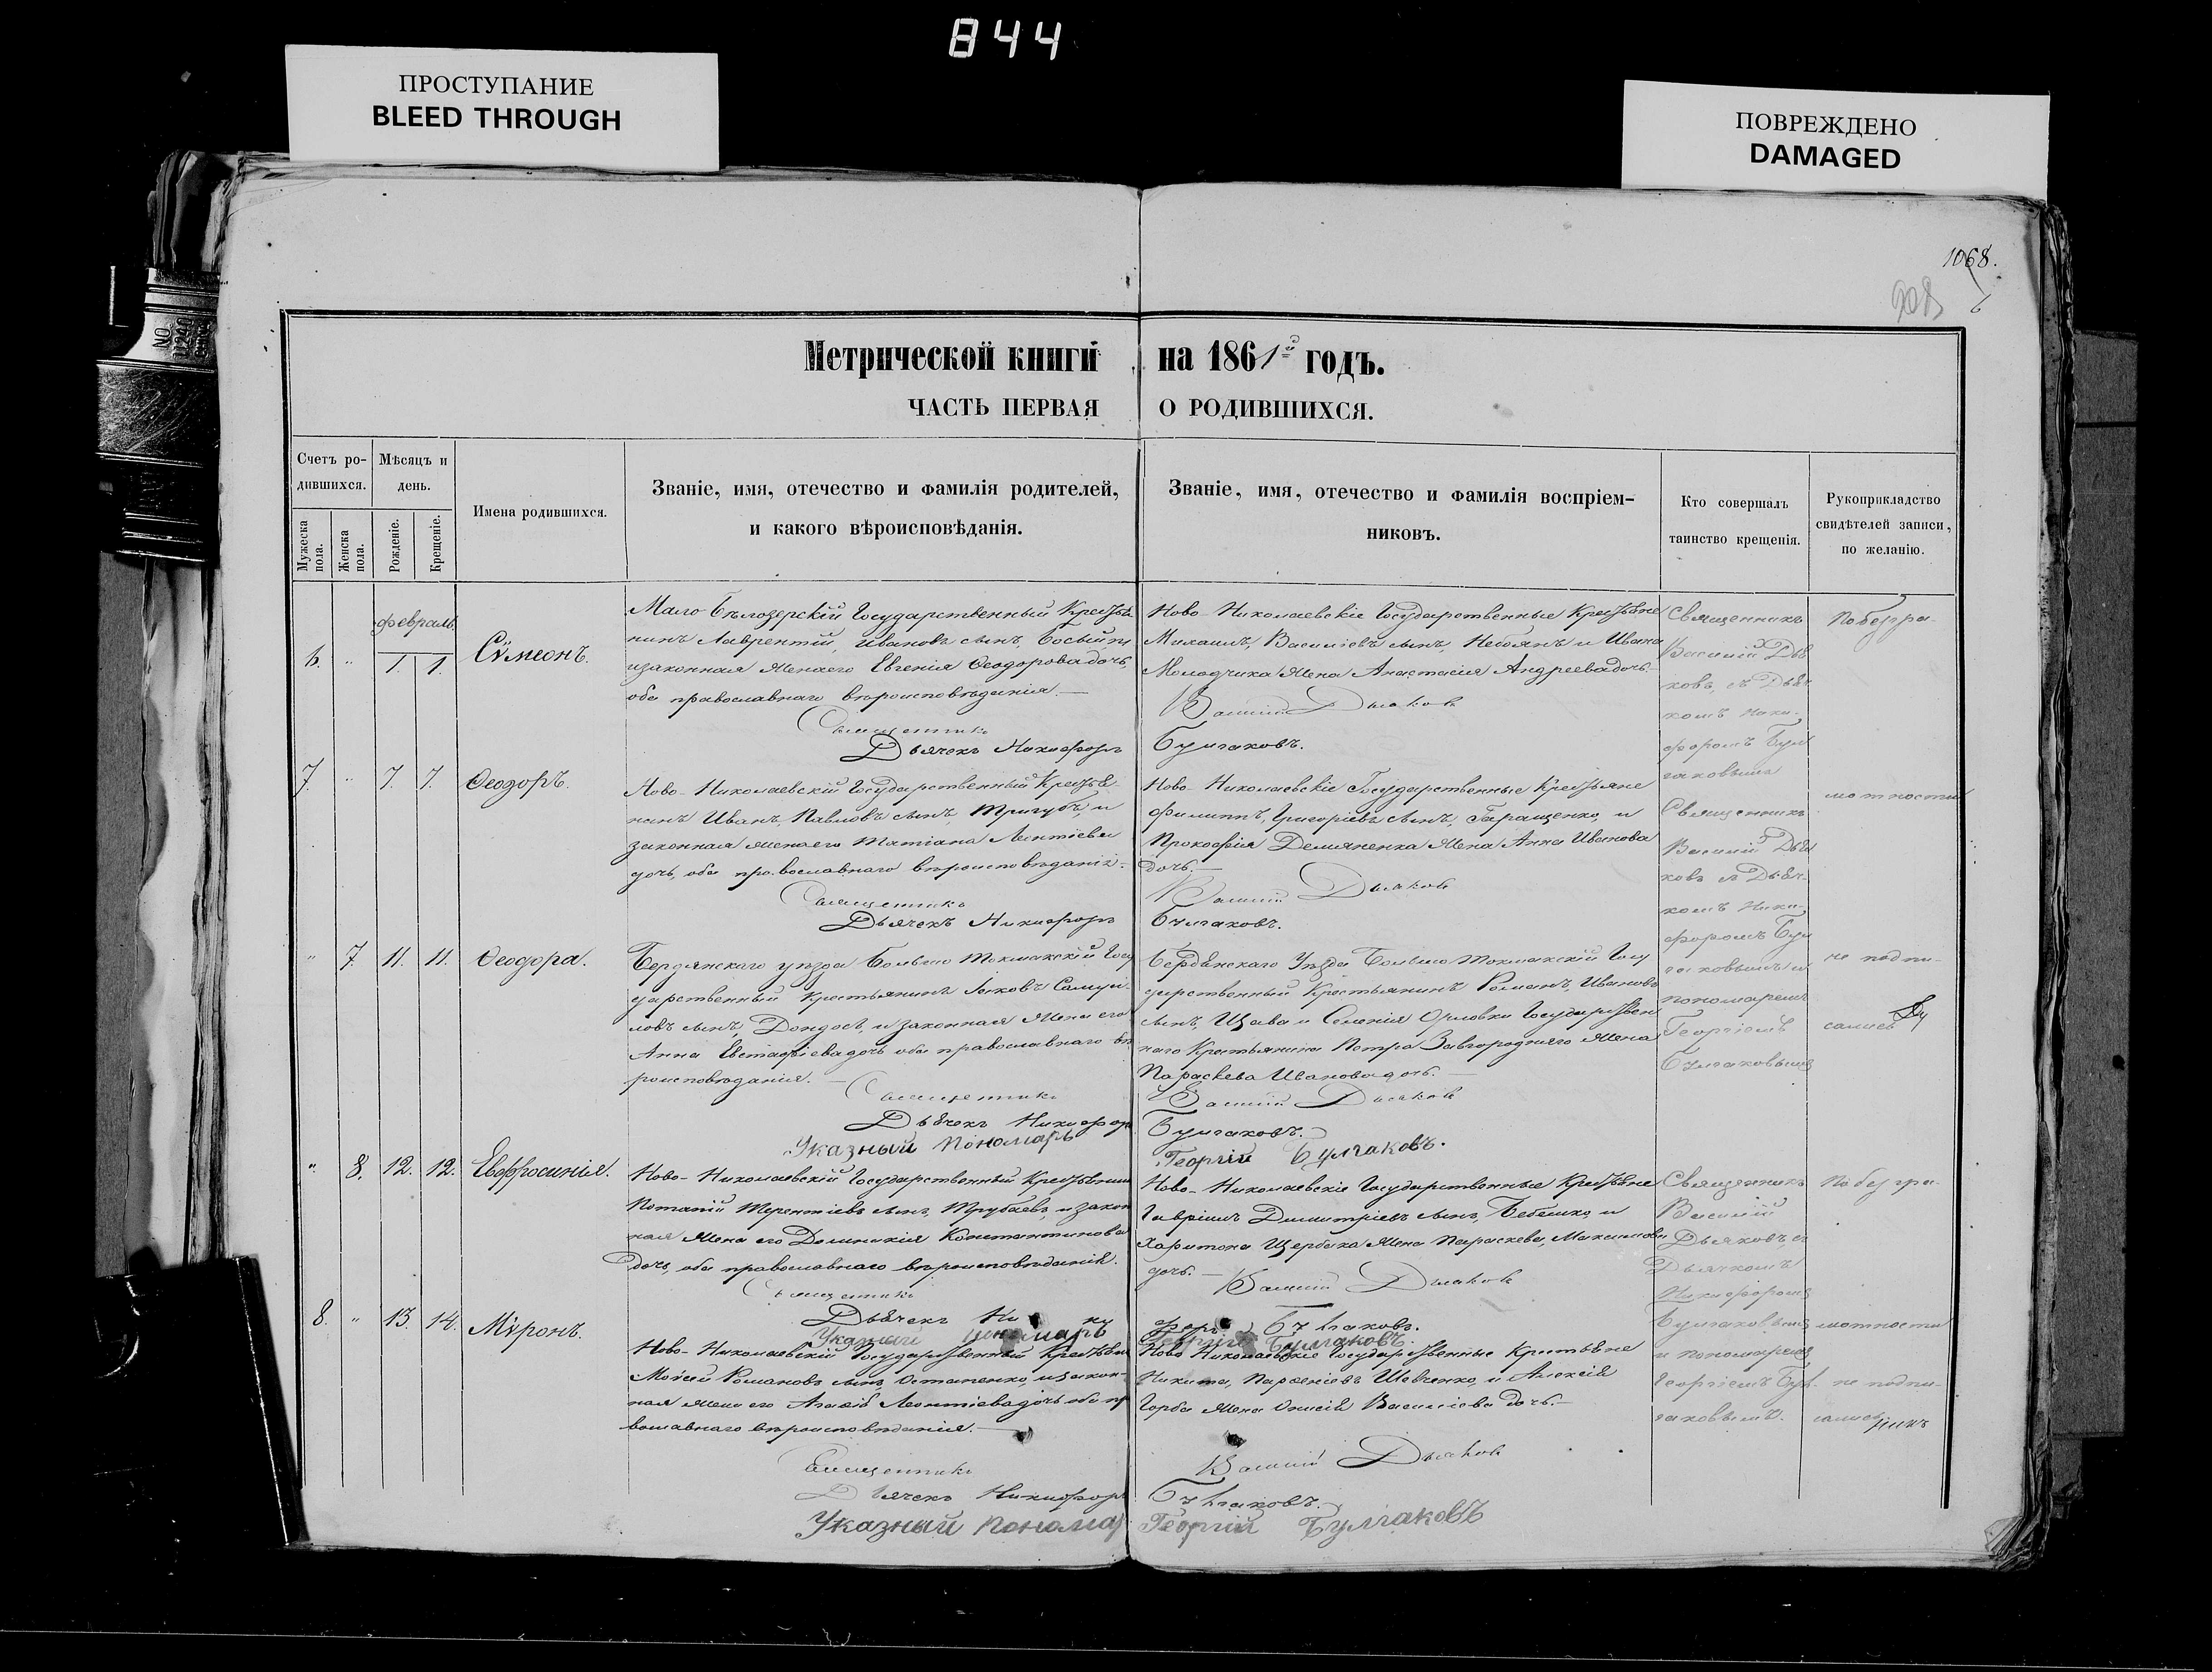 844
ПРОСТУПАНИЕ
BLEED THROUGH
ПОВРЕЖДЕНО
DAMAGED
1068.
908
6
Метрической книги на 1861й годъ.
ЧАСТЬ ПЕРВАЯ О РОДИВШИХСЯ.
Счетъ ро-
дившихся.
Мужеска пола.
Женска пола.
Мѣсяцъ и
день.
Рожденіе.
Крещеніе.
Имена родившихся.
Званіе, имя, отечество и фамилія родителей,
и какого вѣроисповѣданія.
Званіе, имя, отечество и фамилія воспріем-
никовъ.
Кто совершалъ
таинство крещенія.
Рукоприкладство
свидѣтелей записи,
по желанію.
февраль
6. " 1. 1. Сѵмеонъ.
Мало-Бѣлозерскій Государственный Крестья
нинъ Лаврентій, Ивановъ сынъ,
изаконная жена его Евгенія Ѳеодорова дочь,
оба православнаго вѣроисповѣданія.—
Священникъ
Дьячекъ Никифоръ
Ново-Николаевскіе Государственные Крестьяне
Михаилъ, Васильевъ сынъ, и Ивана
Молодчика жена Анастасія Андреева дочь.
Василій Дьяковъ
Булгаковъ.
Священникъ
Василій Дья
ковъ, съ Дьяч
комъ Ники-
форомъ Бул
гаковымъ
По безгра-
7. " 7. 7. Ѳеодоръ.
Ново-Николаевскій Государственный Крестья-
нинъ Иванъ, Павловъ сынъ, Тригубъ, и
законная жена его Татіана Леонтіева
дочь, оба православнаго вѣроисповѣданія.
Священникъ
Дьячекъ Никифоръ
Ново-Николаевскіе Государственные Крестьяне
Филиппъ, Григорьевъ сынъ, Гаращенко, и
Прокофія Демяненка жена Анна Иванова
дочь.—
Василій Дьяковъ
Булгаковъ.
мотности
Священникъ
Василій Дья
ковъ съ Дьяч-
комъ Ники-
форомъ Бул
гаковымъ и
пономаремъ
Георгіемъ
Булгаковымъ
" 7. 11. 11. Ѳеодора.
Бердянскаго уѣзда Больше Токмакскій Госу
дарственный Крестьянинъ Іяковъ Самуи-
ловъ сынъ, Дондосъ, и законная жена его
Анна Евстафіева дочь оба православнаго вѣ
роисповѣданія.—
Священникъ
Дьячекъ Никифоръ
Указный Пономарь
Бердянскаго Уѣзда Больше Токмакскій Госу
дарственный Крестьянинъ Романъ, Ивановъ
сынъ, Щава и Селенія Орловки Государствен
наго Крестьянина Петра Завгородняго жена
Параскева Иванова дочь.—
Василій Дьяковъ
Булгаковъ.
Георгій Булгаковъ.
не подпи-
сались
" 8. 12. 12. Евфросинія.
Ново-Николаевскій Государственный Крестьянинъ
Потапій Терентіевъ сынъ, Трубаевъ, и закон
ная жена его Домникія Константинова
дочь, оба православнаго вѣроисповѣданія.
Священникъ
Дьячекъ Ники
Указный Пономарь
Ново-Николаевскіе Государственные Крестьяне
Гавріилъ Димитріевъ сынъ, Бебешко, и
Харитона Щербака жена Параскева, Максимова
дочь.—
Василій Дьяковъ
форъ Булгаковъ.
Георгій Булгаковъ.
Священникъ
Василій
Дьяковъ, съ
Дьячкомъ
Никифоромъ
Булгаковымъ
и пономаремъ
Георгіемъ Бул-
гаковымъ.
По безгра-
мотности
не подпи-
сались
8. " 13. 14. Мѵронъ.
Ново-Николаевскій Государственный Крестьянинъ
Моисей Романовъ сынъ, Остапенко, изакон-
ная жена его Агафія Леонтіева дочь оба пр
вославнаго вѣроисповѣданія.—
Священникъ
Дьячекъ Никифоръ
Указный Пономарь
Ново Николаевскіе Государственные Крестьяне
Никита, Парфеніевъ Шевченко, и Алексія
Горба жена Василіева дочь.—
Василій Дьяковъ
Булгаковъ.
Георгій Булгаковъ